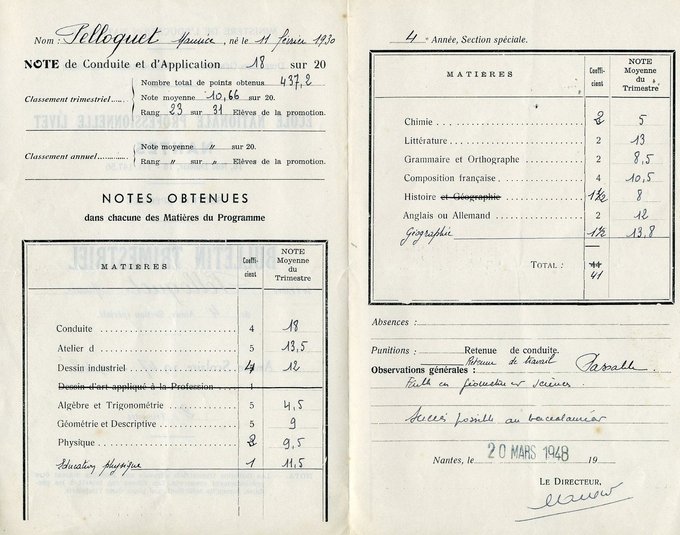 Nom : Pelloquet Maurice, né le 11 février 1930
NOTE de Conduite et d'Application 18 sur 20
Nombre total de points obtenus 437,2
Classement trimestriel...... Note moyenne 10,66 sur 20.
Rang 23 sur 31 Elèves de la promotion.
Note moyenne " sur 20.
Classement annuel......
Rang " sur " Elèves de la promotion.
NOTES OBTENUES
dans chacune des Matières du Programme
MATIÈRES Coeffi-cient NOTE Moyenne du Trimestre
Conduite 4 18
Atelier d 5 13,5
Dessin industriel 4 12
Dessin d'art appliqué à la Profession 1
Algèbre et Trigonométrie 5 4,5
Géométrie et Descriptive 5 9
Physique 2 9,5
Education physique 1 11,5
4e Année, Section spéciale.
MATIÈRES Coeffi-cient NOTE Moyenne du Trimestre
Chimie 2 5
Littérature 2 13
Grammaire et Orthographe 2 8,5
Composition française 4 10,5
Histoire et Géographie 1 1/2 8
Anglais ou Allemand 2 12
Géographie 1 1/2 13,8
TOTAL : 41
Absences :
Punitions : Retenue de conduite.
Retenue de travail
Observations générales : Passable
en géométrie et sciences
Succès possible au baccalauréat
Nantes, le 20 MARS 1948 19
LE DIRECTEUR,